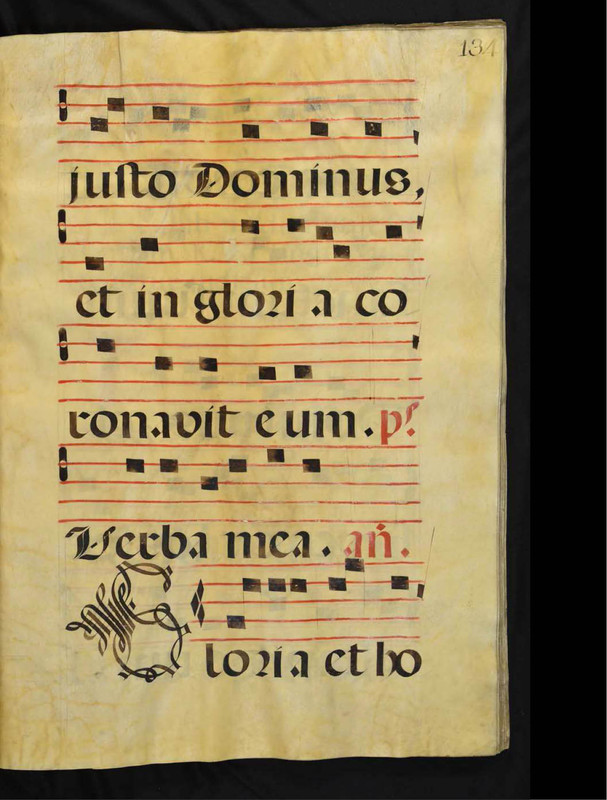 134
justo Dominus,
et in glori a co
ronavit eum. ps.
Verba mea. añ.
Gloria et ho